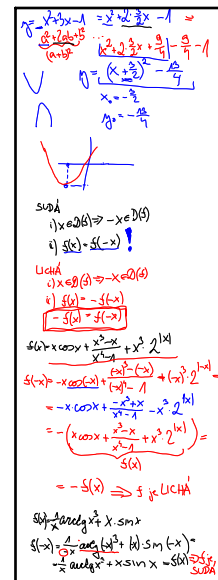 y = x²+3x-1 = x²+2·3/2x-1 =>
a²+2ab+b²
(a+b)²
x²+2·3/2x+9/4-9/4-1
y = (x+3/2)²-13/4
x₀ = -3/2
y₀ = -13/4
SUDÁ
i) x∈D(f) => -x∈D(f)
ii) f(x) = f(-x) !
LICHÁ
i) x∈D(f) => -x∈D(f)
ii) f(x) = -f(-x)
-f(x) = f(-x)
f(x) = x cos x + (x³-x)/(x⁴-1) + x³·2^|x|
f(-x) = -x cos(-x) + ((-x)³-(-x))/((-x)⁴-1) + (-x)³·2^|-x| =
= -x·cos x + (-x³+x)/(x⁴-1) - x³·2^|x|
= -(x cos x + (x³-x)/(x⁴-1) + x³·2^|x|) =
f(x)
= -f(x) => f je LICHÁ
f(x) = 1/x arctg x³ + x·sin x
f(-x) = 1/-x arctg (-x)³ + (-x)·sin(-x) =
= 1/x arctg x³ + x·sin x = f(x) => f je SUDÁ